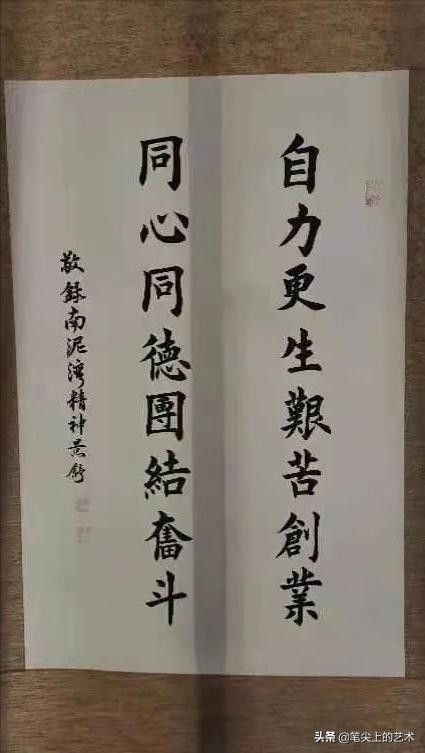 自力更生艱苦創業
同心同德團結奮斗
敬錄南泥灣精神景舒
头条 @笔尖上的艺术